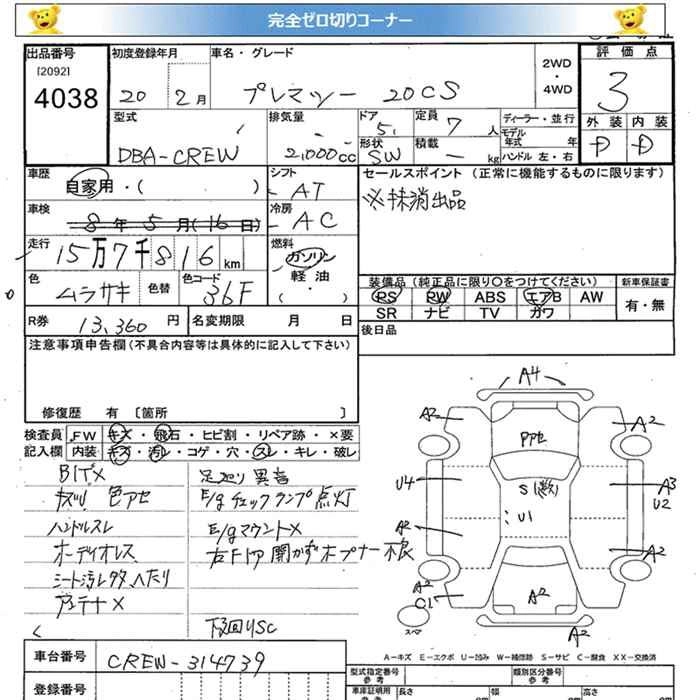 完全ゼロ切りコーナー
出品番号
[2092]
4038
初度登録年月
20 2月
車名・グレード
プレマシー 20CS
2WD
・
4WD
評価点
3
型式
DBA-CREW
排気量
2,000cc
ドア
5
定員
7人
形状
SW
積載
- kg
ディーラー・並行
モデル年式 年
ハンドル 左・右
外装 内装
D D
車歴
自家用・( )
シフト
AT
車検
8年5月(16日)
冷房
AC
走行
15万7千816km
燃料
ガソリン
軽油
( ・ )
色
ムラサキ
色替
色コード
36F
R券
13,360円
名変期限 月 日
セールスポイント (正常に機能するものに限ります)
※抹消出品
装備品(純正品に限り○をつけてください)
PS PW ABS エアB AW
SR ナビ TV カワ
新車保証書
有・無
後日品
注意事項申告欄(不具合内容等は具体的に記入して下さい)
修復歴 有 〔箇所 〕
検査員記入欄
FW キズ・飛石・ヒビ割・リペア跡・×要
内装 キズ・汚レ・コゲ・穴・スレ・キレ・破レ
色アセ
ハンドルスレ
オーディオレス
シート汚レ多、ヘたり
アンテナ×
足廻り異音
E/gチェックランプ点灯
E/gマウント×
右Fドア開かず オープナー不良
下廻りSC
A4
A2
A2
PPセ
U4
S(数)
U1
A3
U2
A2
A2
A2
C1
A2
A2
スペア
A-キズ E-エクボ U-凹み W-補修跡 S-サビ C-腐食 XX-交換済
車台番号
CREW-314739
登録番号
型式指定番号
参考
類別区分番号
参考
車庫証明用
参考
長さ
幅
高さ